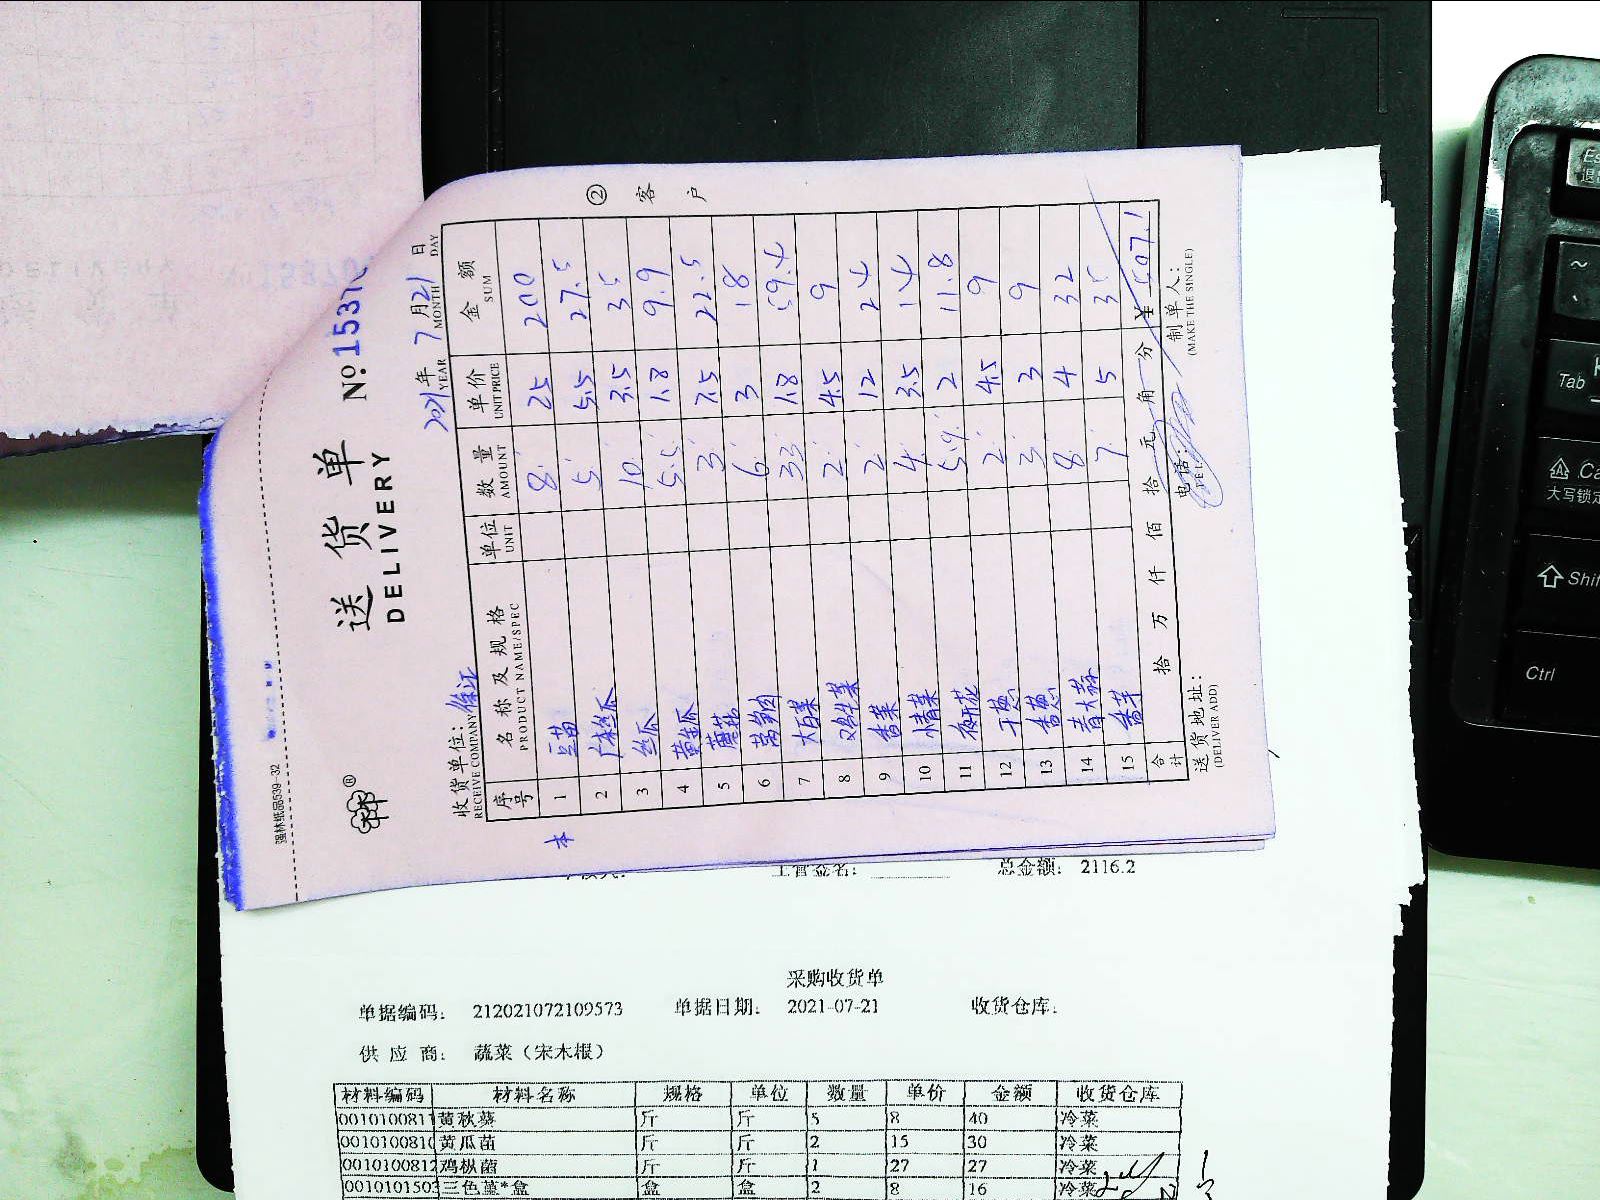 强林纸品539-32
送货单 № 15370
DELIVERY
2021年 7月21日
YEAR MONTH DAY
收货单位：
RECEIVE COMPANY
序号 名称及规格 单位 数量 单价 金额
PRODUCT NAME/SPEC UNIT AMOUNT UNIT PRICE SUM
1 豆苗 8 25 200
2 广东丝瓜 5 5.5 27.5
3 丝瓜 10 3.5 35
4 黄金瓜 5.5 1.8 9.9
5 蘑菇 3 7.5 22.5
6 莴笋肉 6 3 18
7 大白菜 33 1.8 59.4
8 鸡毛菜 2 4.5 9
9 香菜 2 12 24
10 4 3.5 14
11 5.9 2 11.8
12 干葱 2 4.5 9
13 香葱 3 3 9
14 青大蒜 8 4 32
15 香芋 7 5 35
合计 拾 万 仟 佰 拾 元 角 分 ¥ 507.1
送货地址： 电话： 制单人：
(DELIVER ADD) TEL (MAKE THE SINGLE)
② 客户
总金额： 2116.2
采购收货单
单据编码： 212021072109573 单据日期： 2021-07-21 收货仓库：
供应商： 蔬菜（宋木根）
材料编码 材料名称 规格 单位 数量 单价 金额 收货仓库
0010100811 黄秋葵 斤 斤 5 8 40 冷菜
001010081 黄瓜苗 斤 斤 2 15 30 冷菜
0010100812 鸡枞菌 斤 斤 1 27 27 冷菜
0010101503 三色堇*盒 盒 盒 2 8 16 冷菜
Esc
退出
~
Tab
大写锁定
Shif
Ctrl